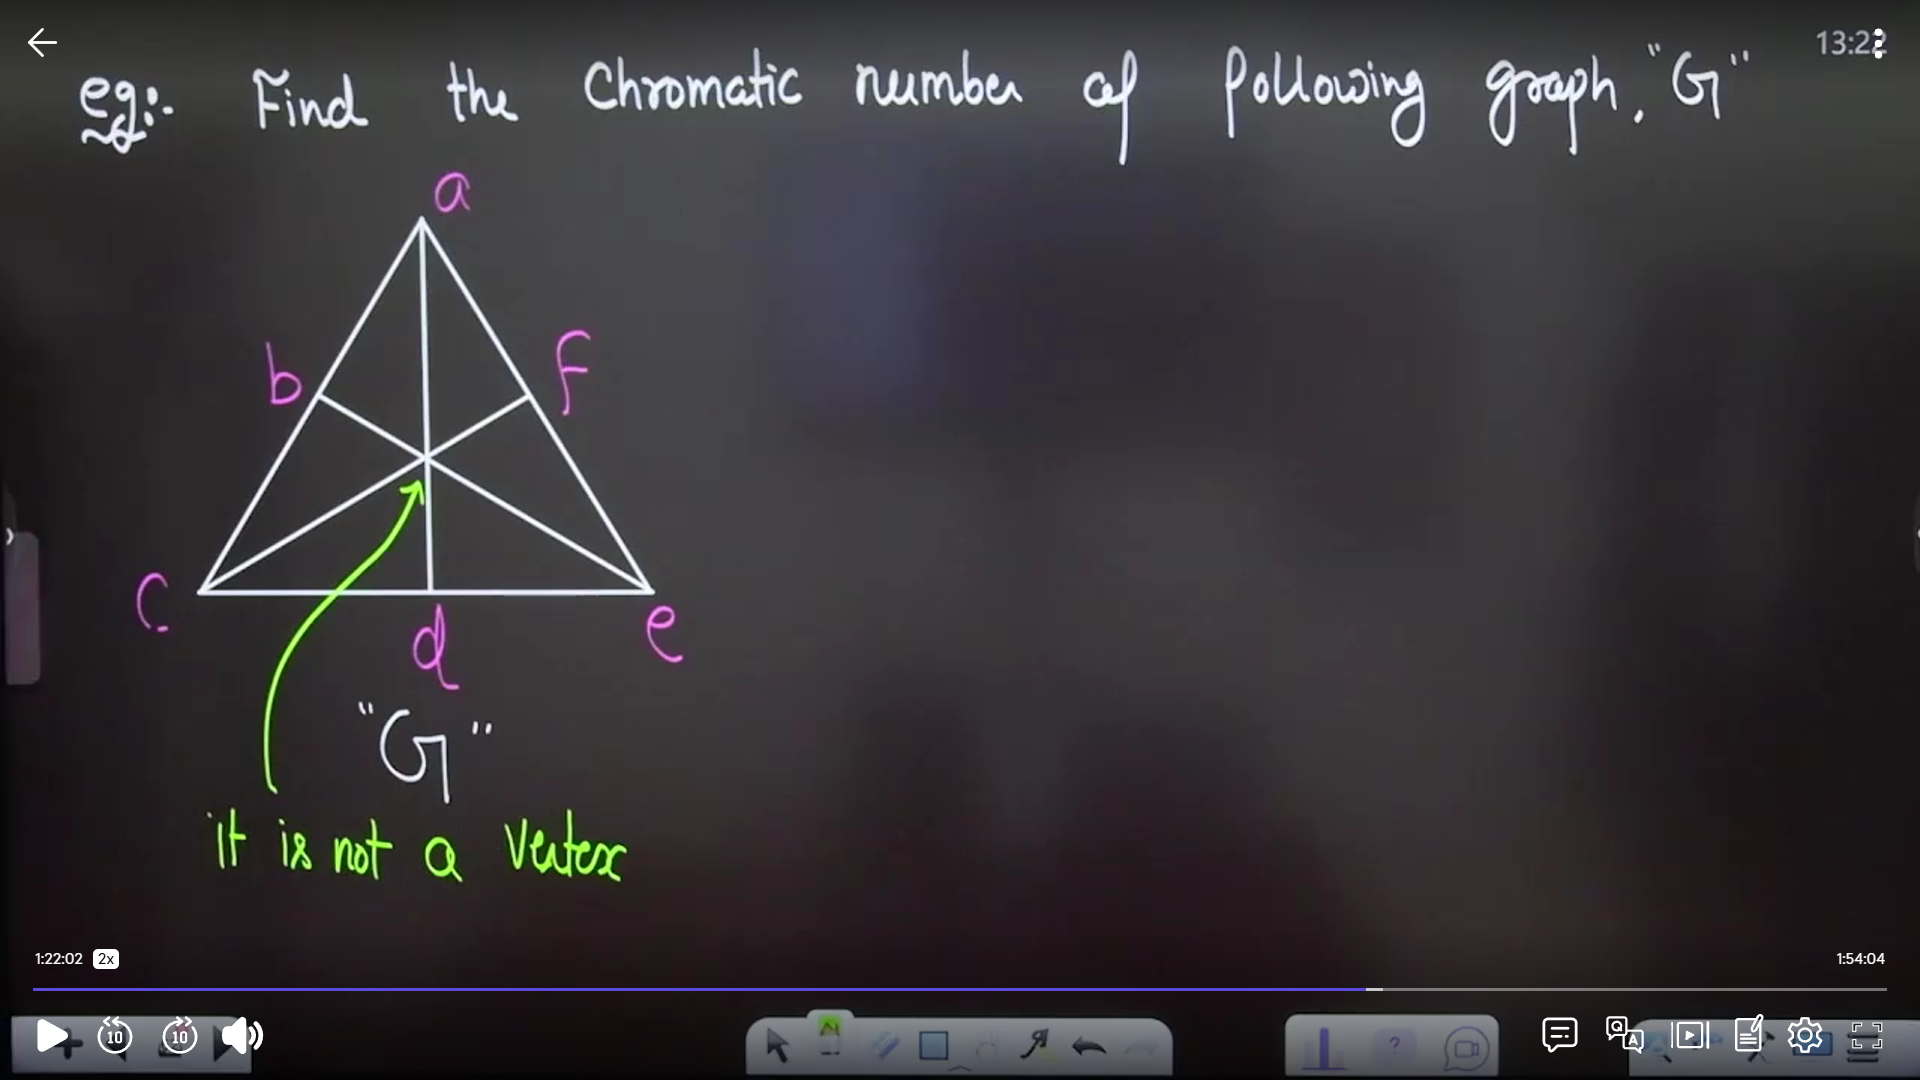 13:22
eg:- Find the Chromatic number of following graph, "G"
a
b
f
c
d
e
"G"
it is not a vertex
1:22:02 2x
1:54:04
10
10